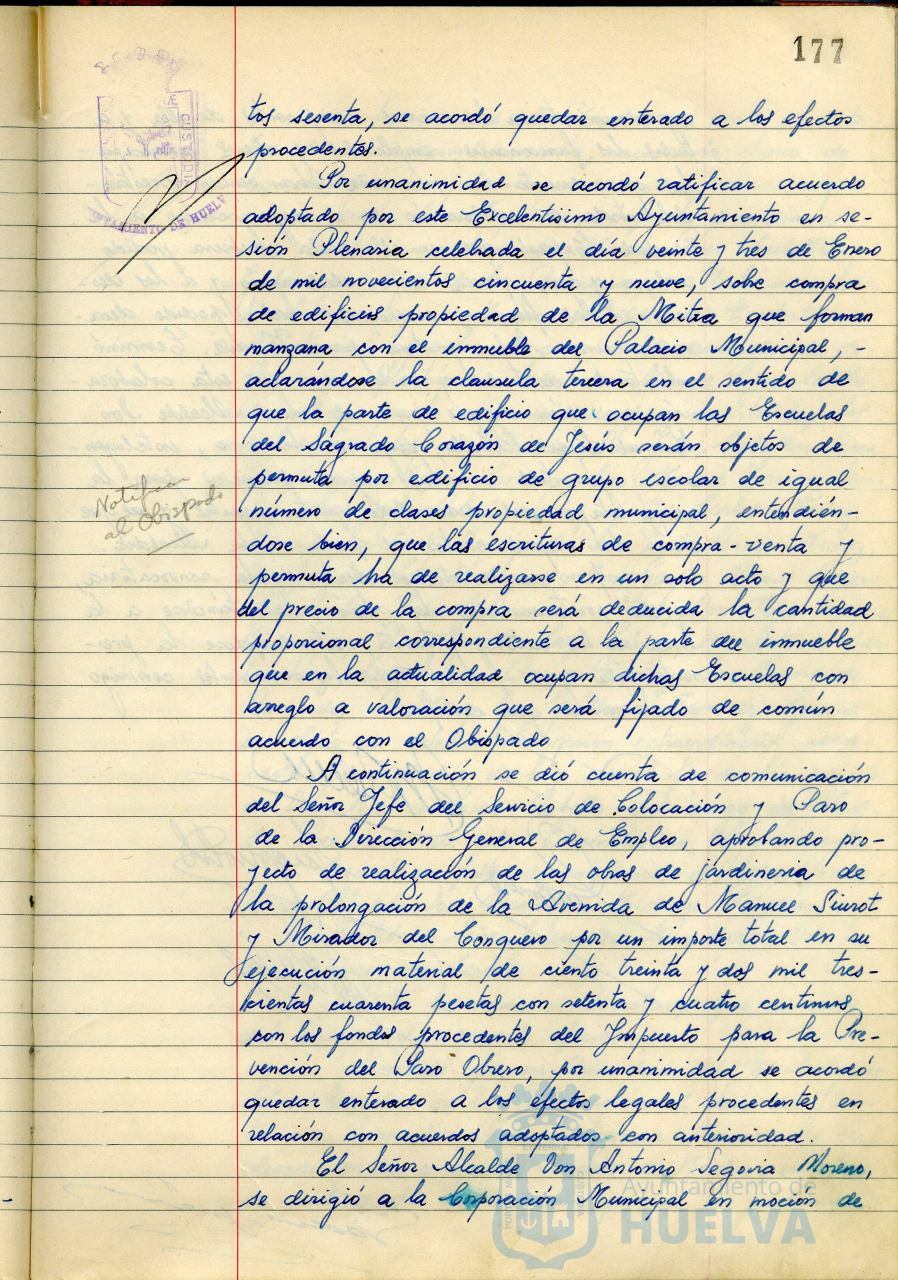 177
tos sesenta, se acordó quedar enterado a los efectos
procedentes.
Por unanimidad se acordó ratificar acuerdo
adoptado por este Excelentísimo Ayuntamiento en se-
sión Plenaria celebrada el día veinte y tres de Enero
de mil novecientos cincuenta y nueve, sobre compra
de edificios propiedad de la Mitra que forman
manzana con el inmueble del Palacio Municipal, -
aclarándose la clausula tercera en el sentido de
que la parte de edificio que ocupan las Escuelas
del Sagrado Corazón de Jesús serán objetos de
permuta por edificio de grupo escolar de igual
número de clases propiedad municipal, entendién-
dose bien, que las escrituras de compra-venta y
permuta ha de realizarse en un solo acto y que
del precio de la compra será deducida la cantidad
proporcional correspondiente a la parte del inmueble
que en la actualidad ocupan dichas Escuelas con
arreglo a valoración que será fijado de común
acuerdo con el Obispado
A continuación se dió cuenta de comunicación
del Señor Jefe del Servicio de Colocación y Paro
de la Dirección General de Empleo, aprobando pro-
yecto de realización de las obras de jardineria de
la prolongación de la Avenida de Manuel Siurot
y Mirador del Conquero por un importe total en su
ejecución material de ciento treinta y dos mil tres-
cientas cuarenta pesetas con setenta y cuatro centimos
con los fondos procedentes del Impuesto para la Pre-
vención del Paro Obrero, por unanimidad se acordó
quedar enterado a los efectos legales procedentes en
relación con acuerdos adoptados con anterioridad.
El Señor Alcalde Don Antonio Segovia Moreno,
se dirigió a la Corporación Municipal en moción de
Notificar
al Obispado
CUSTODIA
DE HUELV
Ayuntamiento de
HUELVA